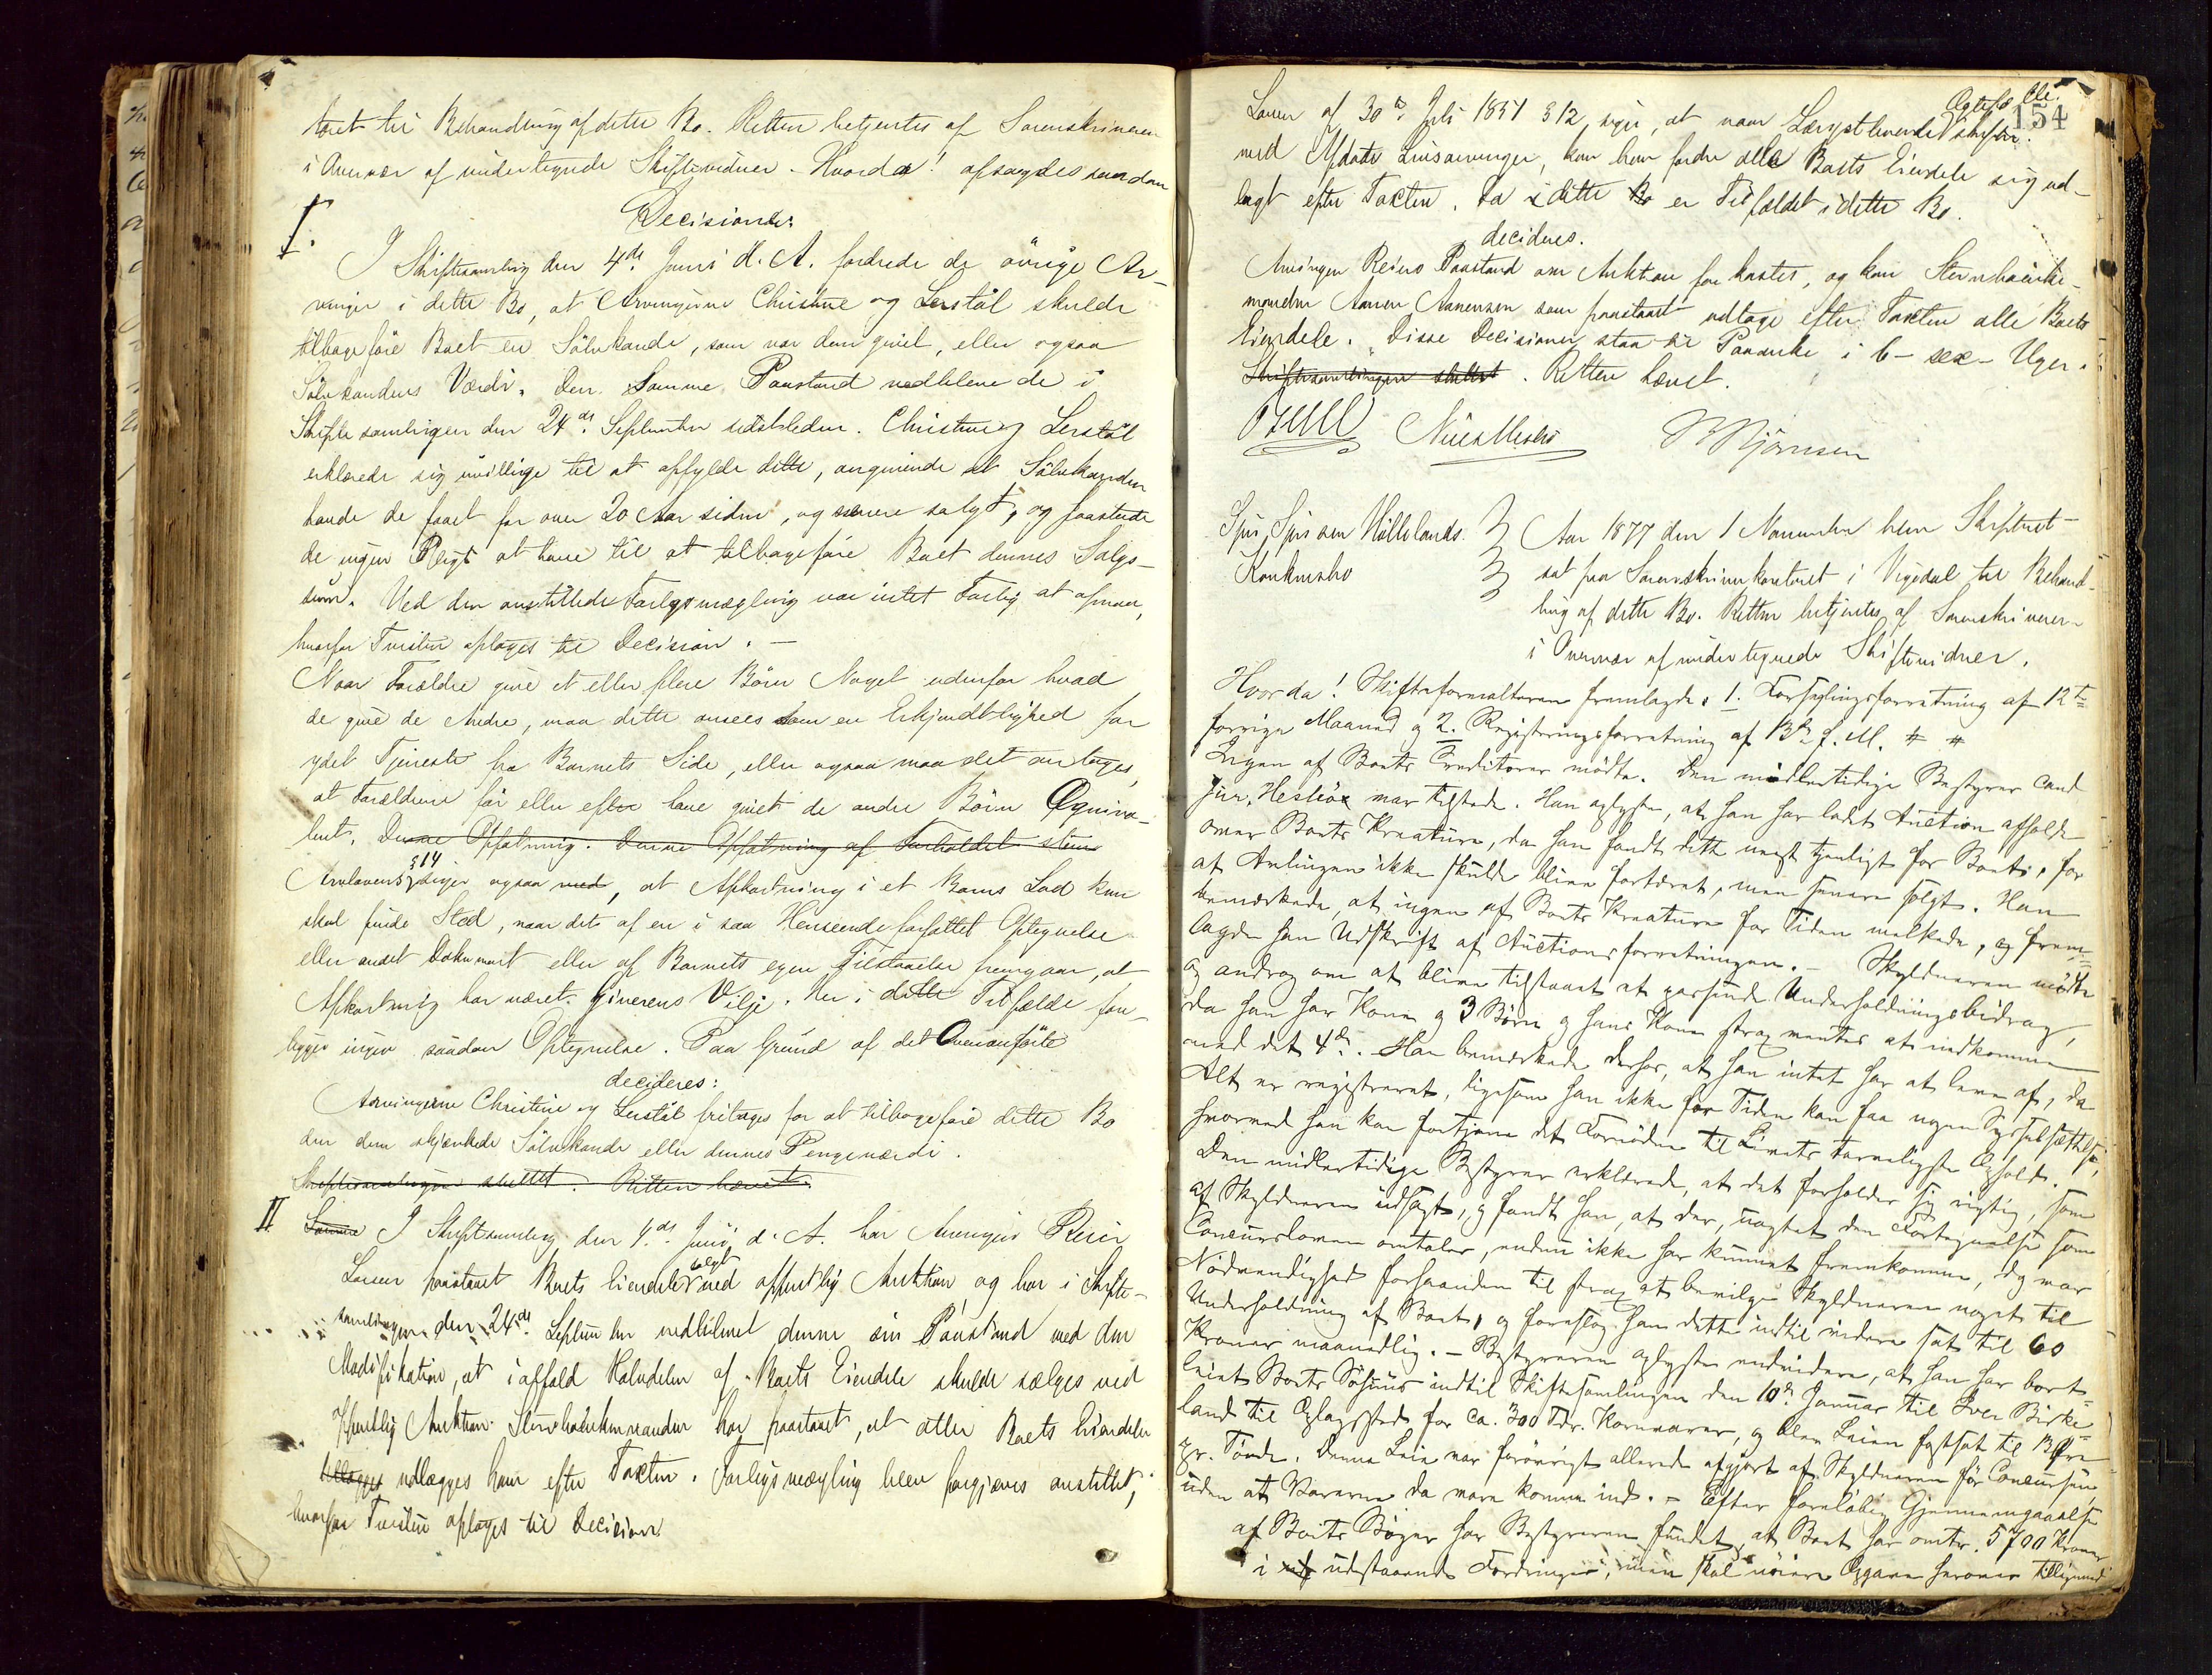 toret til Behandling af dette Bo. Retten betjentes af Sorenskriveren
i Overvær af undertegnede Skiftevidner. Hvorda! afsagdes saadan
Decisioner:
I.
I Skiftesamling den 4de Juni d. A. fordrede de øvrige Ar-
vinger i dette Bo, at Arvingerne Christine og Lerstøl skulde
tilbageføre Boet en Sølvkande, som var dem givet, eller ogsaa
Sølvkandens Værdi. Den Samme Paastand vedblene de i
Skiftesamlingen den 24de September sidstleden. Christine og Lerstøl
erklærede sig uvillige til at opfylde dette, angivende at Sølvkanden
havde de faaet for over 20 Aar siden, og senere solgt, og paastode
de ingen Pligt at have til at tilbageføre Boet dennes Salgs-
sum. Ved den anstillede Forligsmægling var intet Forlig at opnaa,
hvorfor Tvisten optages til Decision. —
Naar Forældre give et eller flere Børn Noget udenfor hvad
de give de Andre, maa dette ansees som en Erkjendtlighed for
ydet Tjeneste fra Barnets Side, eller ogsaa maa det antages,
at Forældrene før eller efter have givet de andre Børn Æqviva-
lent. Denne Opfatning. Denne Opfatning af Forholdet stem
Arvelovens § 14 siger ogsaa med, at Afkortning i et Barns Lod kun
skal finde Sted, naar det af en i saa Henseende forfattet Optegnelse
eller andet Dokument eller af Barnets egen Tilstaaelse fremgaar, at
Afkortning har været Giverens Vilje. Her i dette Tilfælde fore-
ligger ingen saadan Optegnelse. Paa Grund af det Ovenanførte
decideres:
Arvingerne Christine og Lerstøl fritages for at tilbageføre dette Bo
den dem skjænkede Sølvkande eller dennes Pengeværdi.
Skiftesamlingen sluttet. Retten hævet.
II
Samme I Skiftesamling den 4de Juni d. A. har Arvingen Reier
Larsen paastaaet Boets Eiendele solgt ved offentlig Auktion og har i Skifte-
samlingen den 24de September vedholdt denne sin Paastand med den
Modifikation, at i alfald Halvdelen af Boets Eiendele skulde sælges ved
offentlig Auktion. Stervboenkemanden har paastaaet, at alle Boets Eiendele
tillægges udlægges ham efter Taxten. Forligsmægling blev forgjæves anstillet,
hvorfor Tvisten optages til Decision.
154
Loven af 30te Juli 1851 § 12, siger, at naar Længstlevende Ægtefælle skifter
med Afdøde Livsarvinger, kan han fordre alle Boets Eiendele sig ud-
lagt efter Taxten. Da i dette Bo er Tilfældet i dette Bo.
decideres.
Arvingen Reiers Paastand om Auktion forkastes, og kan Stervboenke-
manden Aanen Aanensen som paastaaet udtage efter Taxten alle Boets
Eiendele. Disse Decisioner staa til Paaanke i 6 - sex - Uger.
Skiftesamlingen sluttet. Retten hævet.
Bjørnsen
Sjur Sjursen Hølelands
Konkursbo
Aar 1877 den 1 November blev Skifteret
sat paa Sorenskriverkontoret i Vigedal til Behand-
ling af dette Bo. Retten betjentes af Sorenskriveren
i Overvær af undertegnede Skiftevidner.
Hvorda! Skifteforvalteren fremlagde: 1. Forseglingsforretning af 12te
forrige Maaned og 2. Registreringsforretning af 13de f. M. # #
Ingen af Boets Creditorer mødte. Den midlertidige Bestyrer cand
jur. Heskø var tilstede. Han oplyste, at han har ladet Auction afholde
over Boets Kreature, da han fandt dette mest tjenligt for Boet, for
at Avlingen ikke skulde blive fortæret, men senere solgt. Han
bemærkede, at ingen af Boets Kreature for Tiden melkede, og frem-
lagde han Udskrift af Auctionsforretningen. — Skyldneren mødte
og androg om at blive tilstaaet et passende Underholdningsbidrag,
da han har Kone og 3 Børn og hans Kone strax ventes at nedkomme
med det 4de. Han bemærkede derhos, at han intet har at leve af, da
Alt er registreret, ligesom han ikke for Tiden kan faa nogen Sysselsættelse,
hvorved han kan fortjene det Fornødne til Livets tarveligste Ophold.
Den midlertidige Bestyrer erklærede, at det forholder sig rigtig, som
af Skyldneren udsagt, og fandt han, at der, uagtet den Fortegnelse som
Concursloven omtaler, endnu ikke har kunnet fremkomme, dog var
Nødvendighed forhaanden til strax at bevilge Skyldneren noget til
Underholdning af Boet, og foreslog han dette indtil videre sat til 60
Kroner maanedlig. — Bestyreren oplyste endvidere, at han har bort-
leiet Boets Søhuus indtil Skiftesamlingen den 10de Januar til Iver Birke-
land til Oplagssted for ca. 300 Tdr. Kornvarer, og blev Leien fastsat til 13 Øre
pr. Tønde. Denne Leie var forøvrigt allerede afgjort af Skyldneren før Concursen,
uden at Varerne da vare komne ind. — Efter foreløbig Gjennemgaaelse
af Boets Bøger har Bestyreren fundet, at Boet har omtr. 5700 Kroner
i udestaaende Fordringer, men skal nøiere Opgave herover